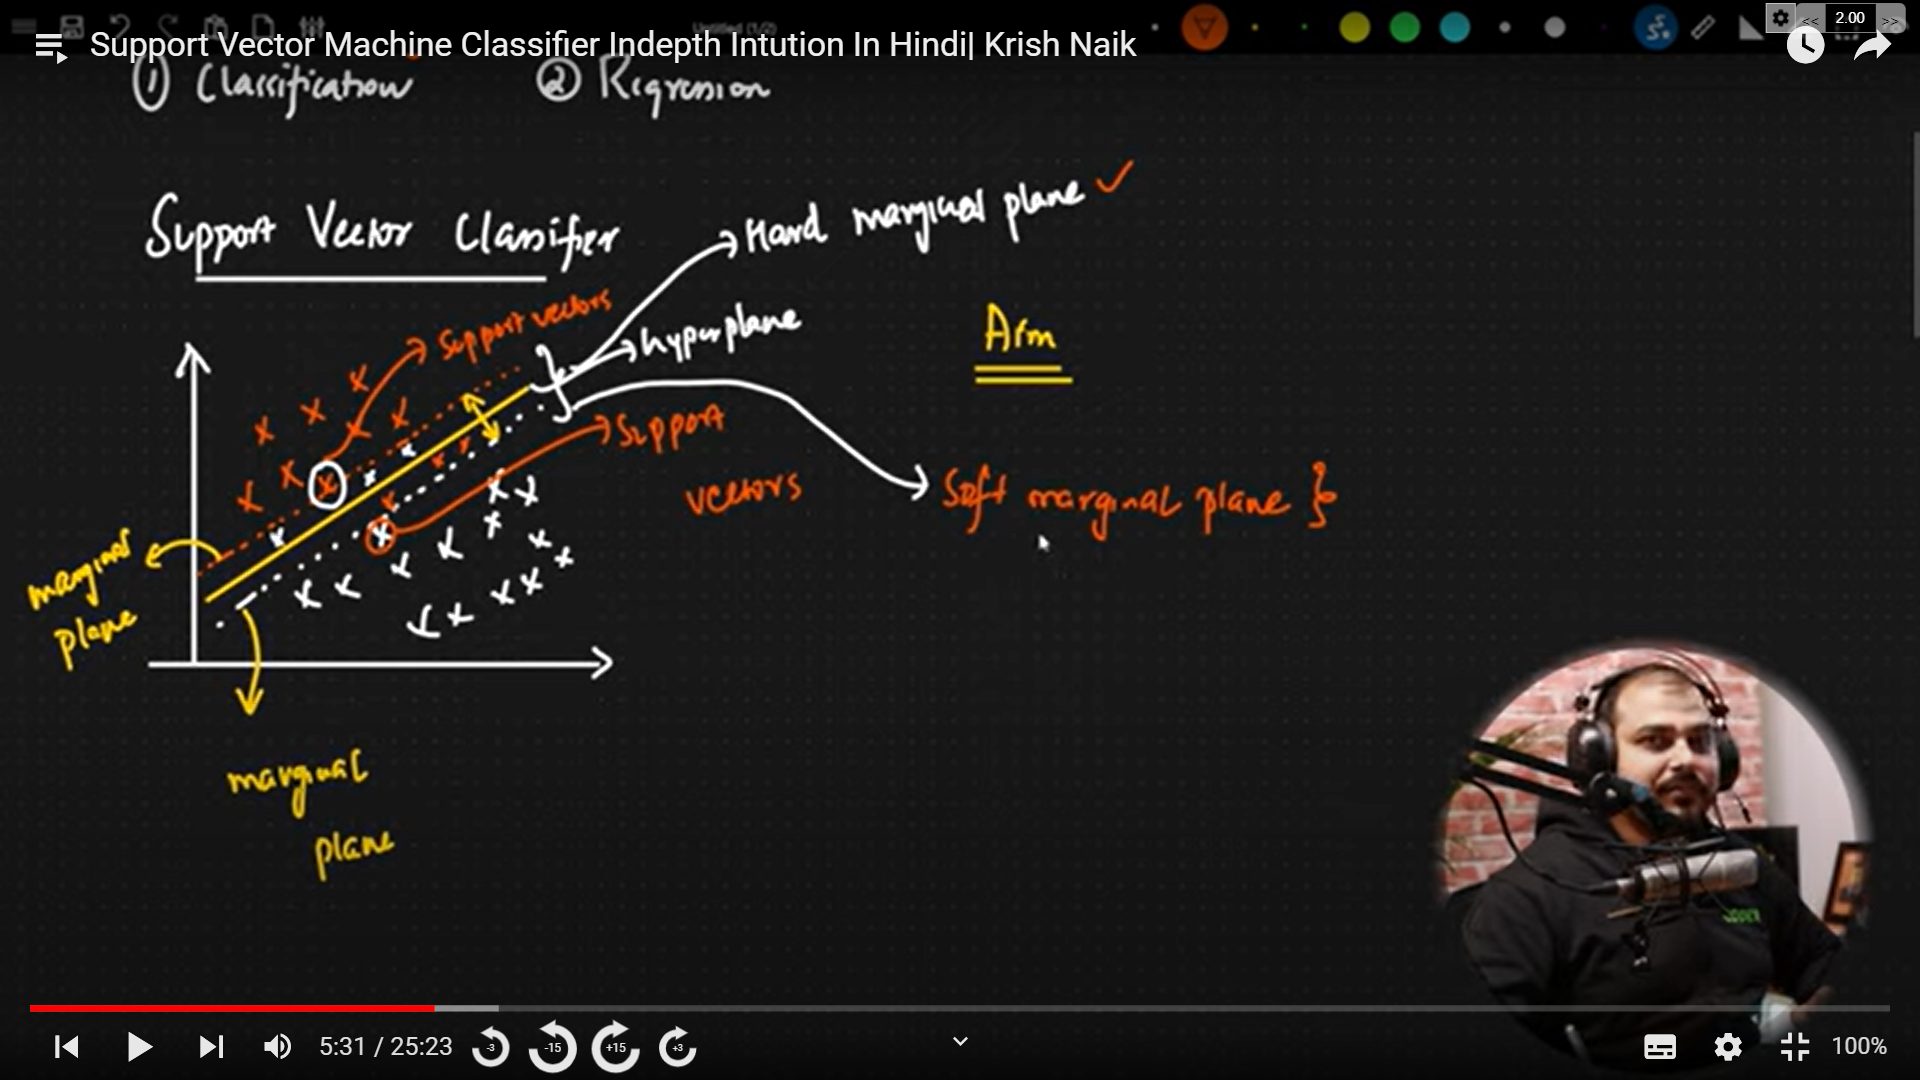 2.00
Support Vector Machine Classifier Indepth Intution In Hindi| Krish Naik
① Classification ② Regression
Support Vector Classifier
Hard marginal plane ✓
Support vectors
hyperplane
Aim
Support
vectors
Soft marginal plane }
marginal
plane
marginal
plane
5:31 / 25:23
-3
-15
+15
+3
100%